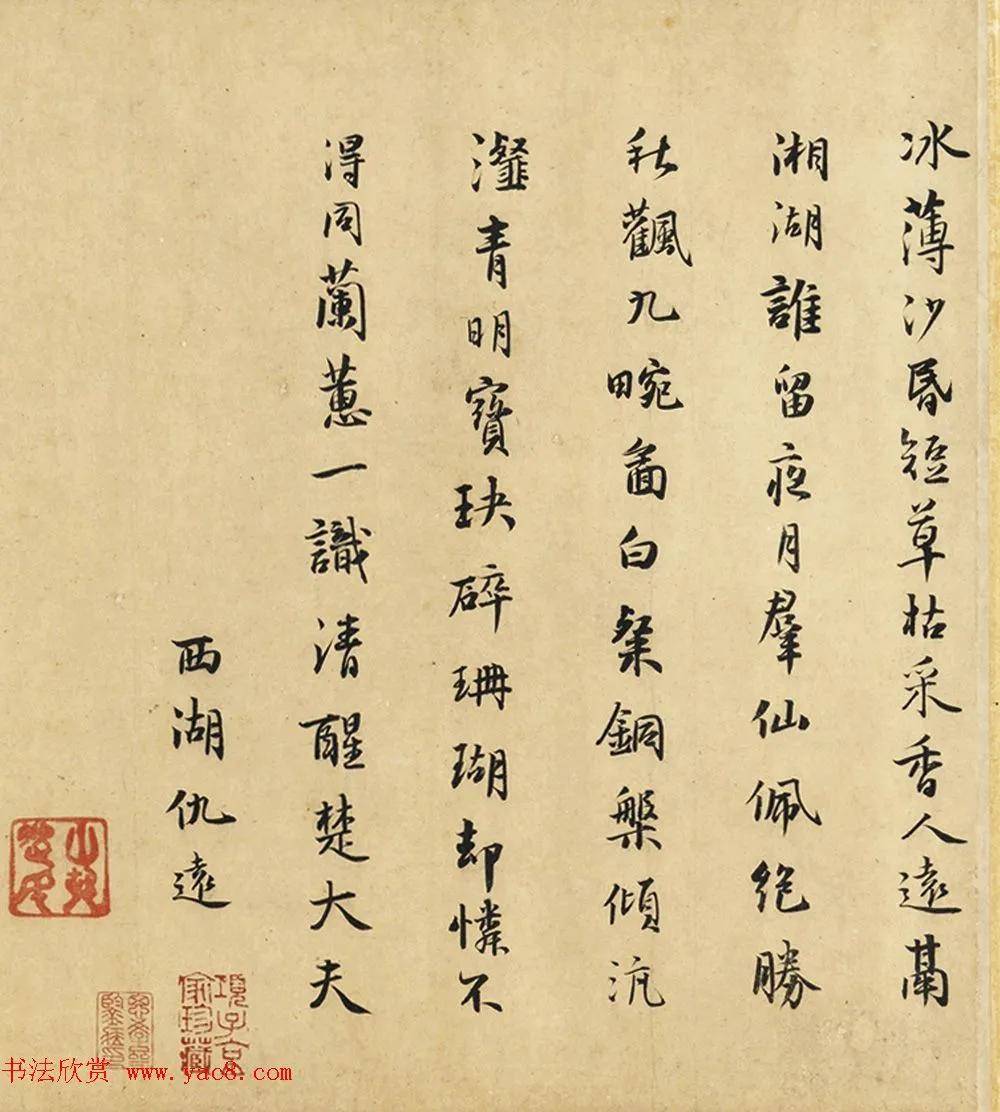 冰薄沙昬短草枯采香人遠鬲
湘湖誰留夜月羣仙佩絕勝
秋飌九畹啚白粲銅槃傾沆
瀣青明寶玦碎珊瑚却憐不
得同蘭蕙一識清醒楚大夫
西湖仇遠
項子京家珍藏
书法欣赏 www.yac8.com